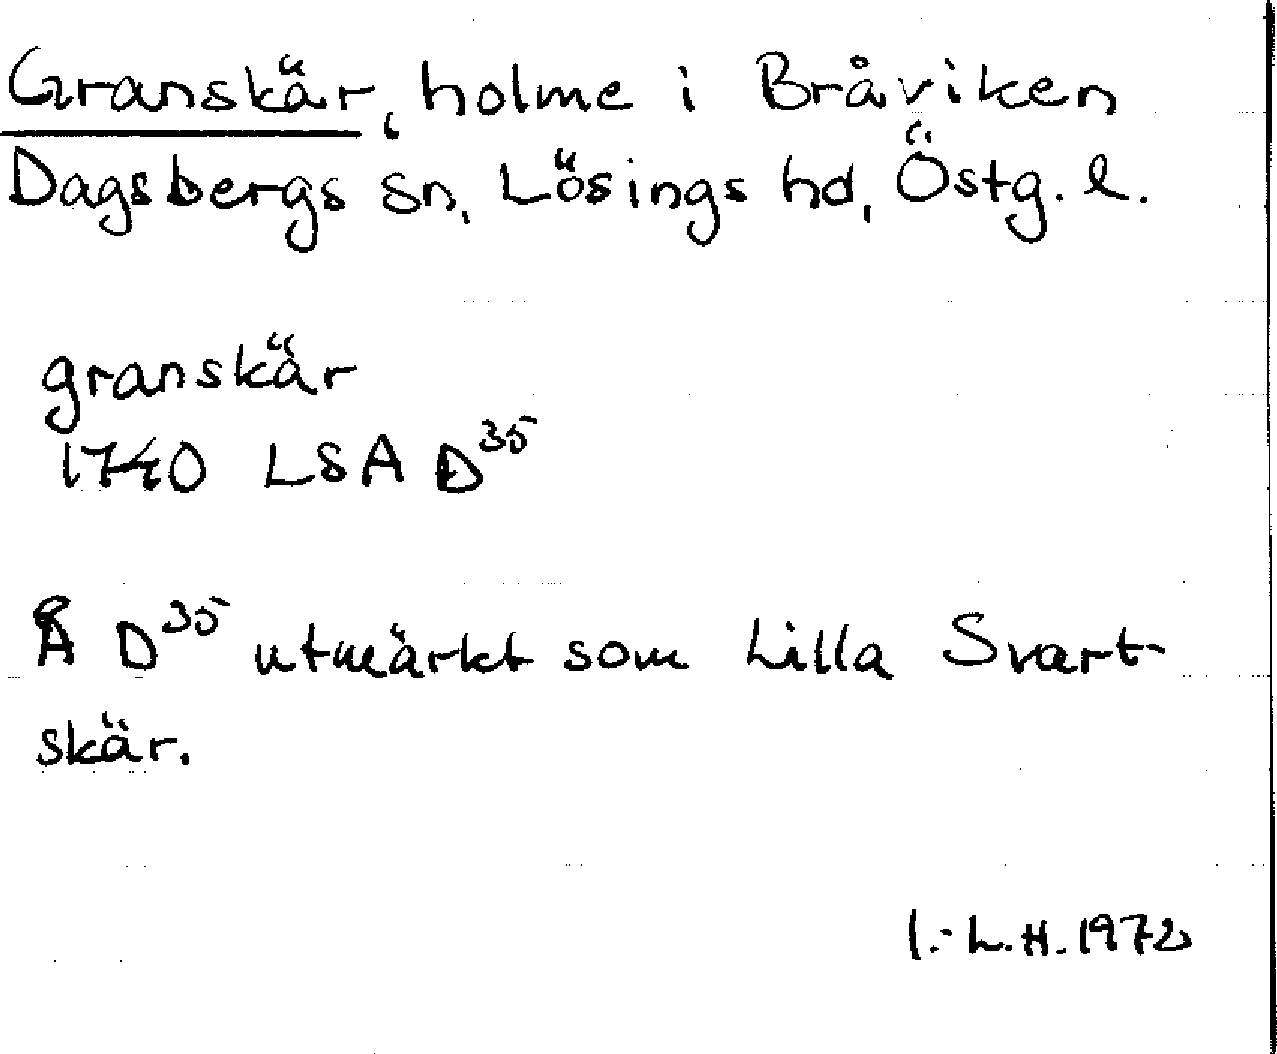 Granskär, holme i Bråviken
Dagsbergs sn, Lösings hd, Östg. l.
granskär
1740 LSA D³⁵
Å D³⁵ utmärkt som Lilla Svart-
skär.
I.-L.H. 1972